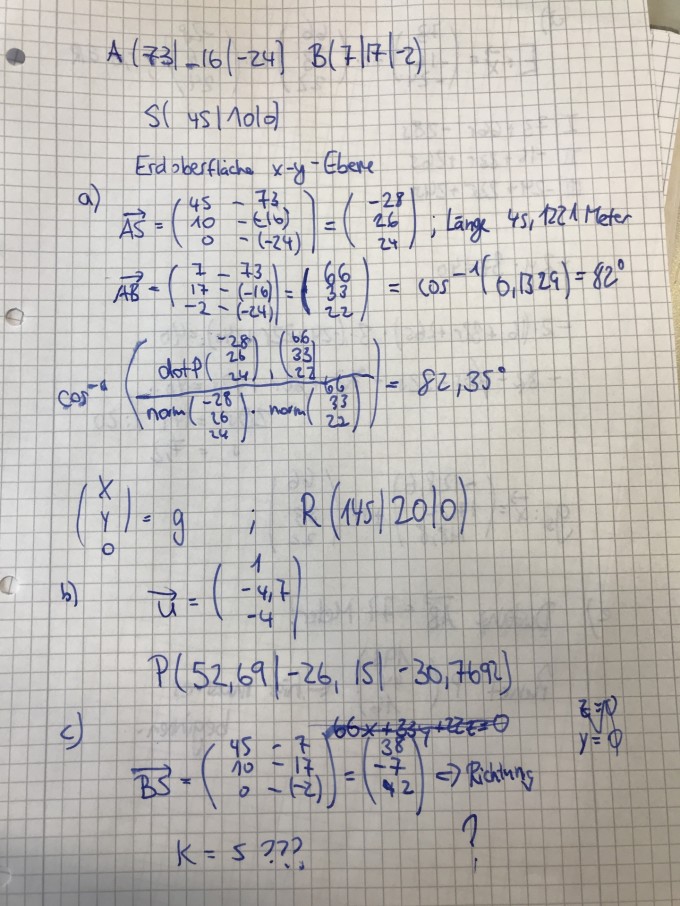 A (73|-16|-24) B(7|17|-2)
S( 45|10|0)
Erdoberfläche x-y-Ebene
a)
AS→ = (45 - 73 / 10 - (-16) / 0 - (-24)) = (-28 / 26 / 24) ; Länge 45,1221 Meter
AB→ = (7 - 73 / 17 - (-16) / -2 - (-24)) = (66 / 33 / 22) = cos⁻¹(0,1329) = 82°
cos⁻¹ (dotP((-28 / 26 / 24), (66 / 33 / 22)) / norm(-28 / 26 / 24) · norm(66 / 33 / 22)) = 82,35°
(X / Y / 0) = g ; R (145|20|0)
b) u→ = (1 / -4,7 / -4)
P(52,69|-26, 15|-30,7692)
c) 66x+33y+22z=0 z=0
y=0
BS→ = (45 - 7 / 10 - 17 / 0 - (-2)) = (38 / -7 / 2) => Richtung
K = s ??? ?